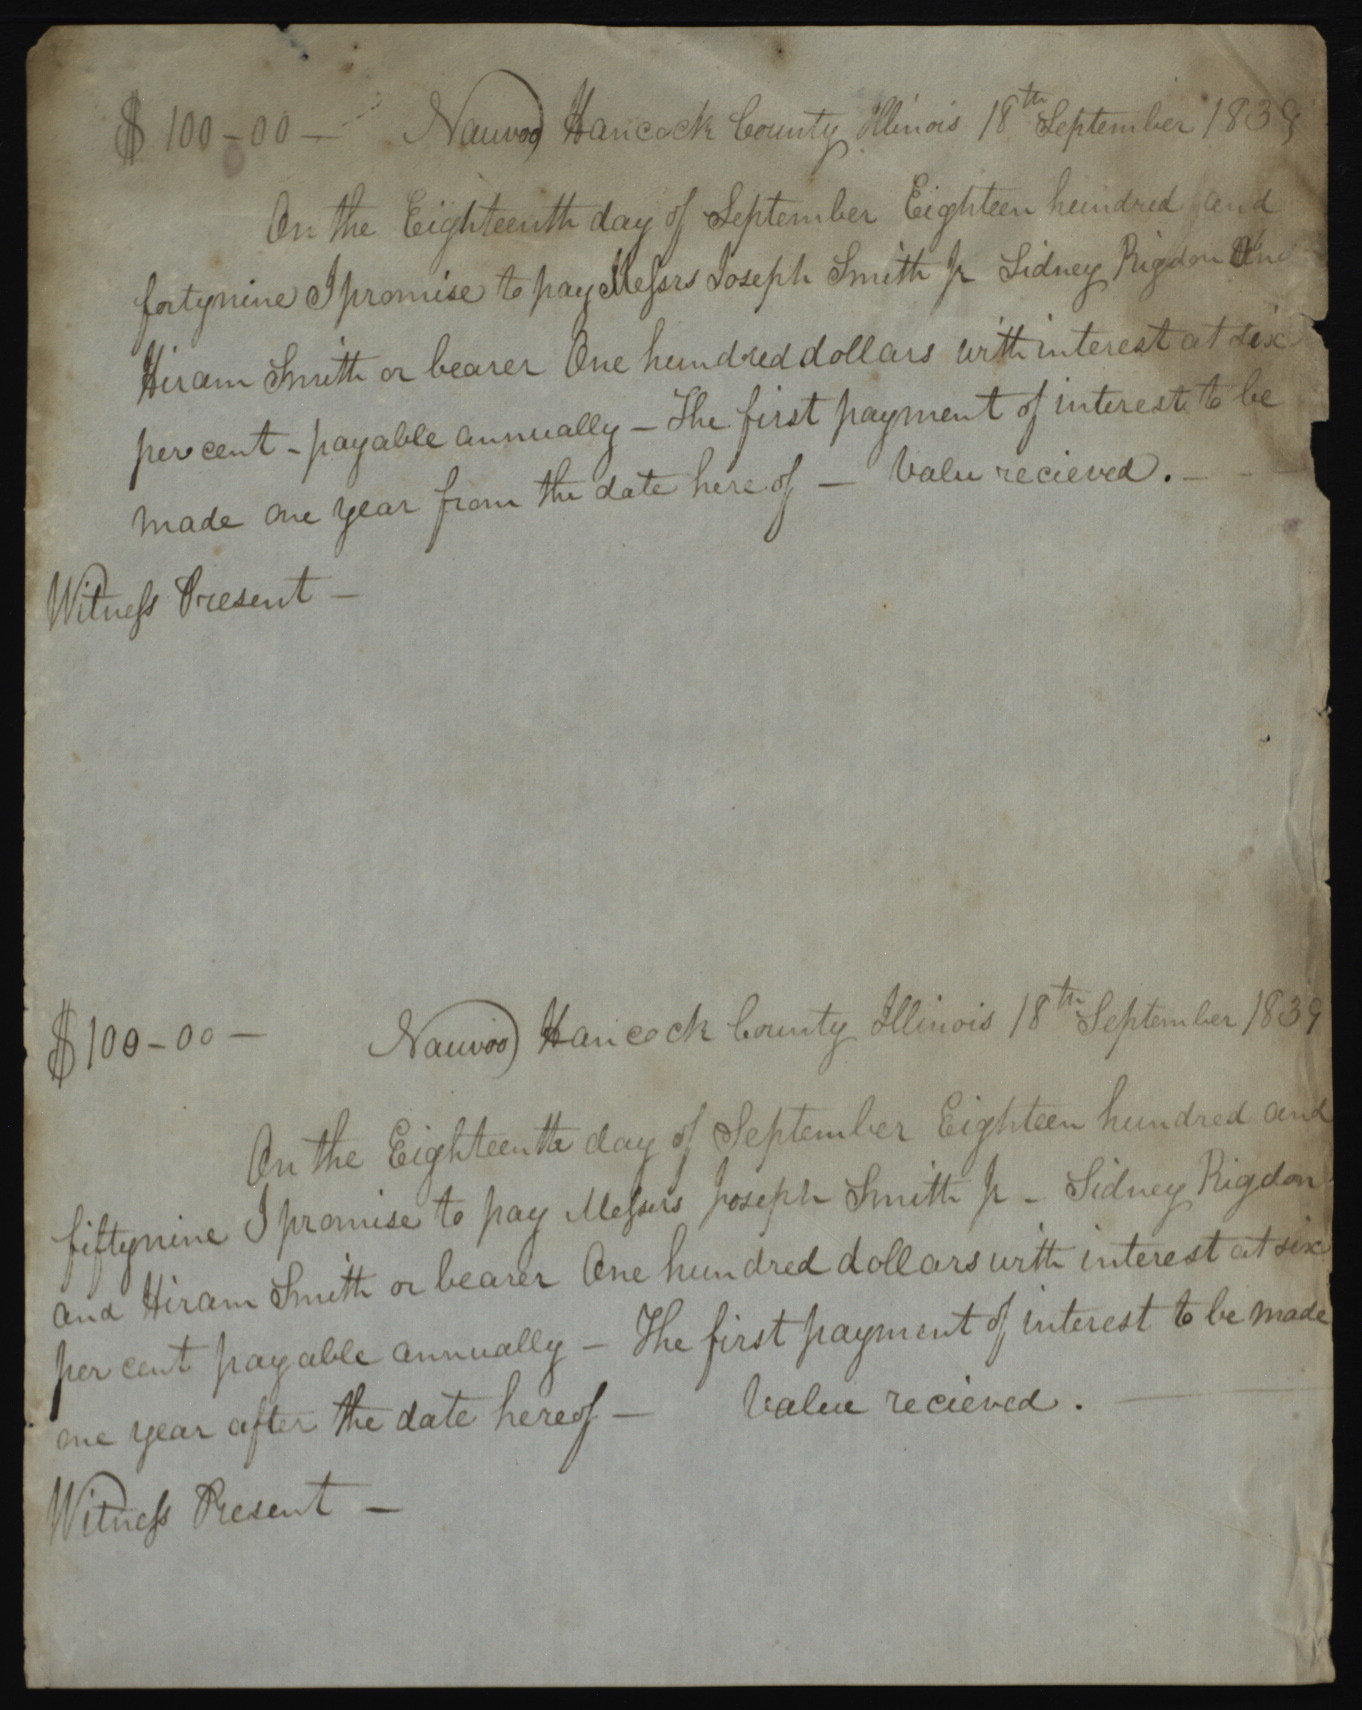 $100-00— Nauvoo Hancock County Illinois 18th September 1839
On the Eighteenth day of September Eighteen hundred and
fortynine I promise to pay Messrs Joseph Smith Jr Sidney Rigdon And
Hiram Smith or bearer One hundred dollars with interest at six
per cent - payable annually — The first payment of interest to be
made one year from the date here of — Value recieved. — - —
Witness Present —
$100-00 — Nauvoo Hancock County Illinois 18th September 1839
On the Eighteenth day of September Eighteen hundred and
fiftynine I promise to pay Messrs Joseph Smith Jr - Sidney Rigdon
and Hiram Smith or bearer One hundred dollars with interest at six
per cent payable annually — The first payment of interest to be made
one year after the date hereof — Value recieved. —
Witness Present —